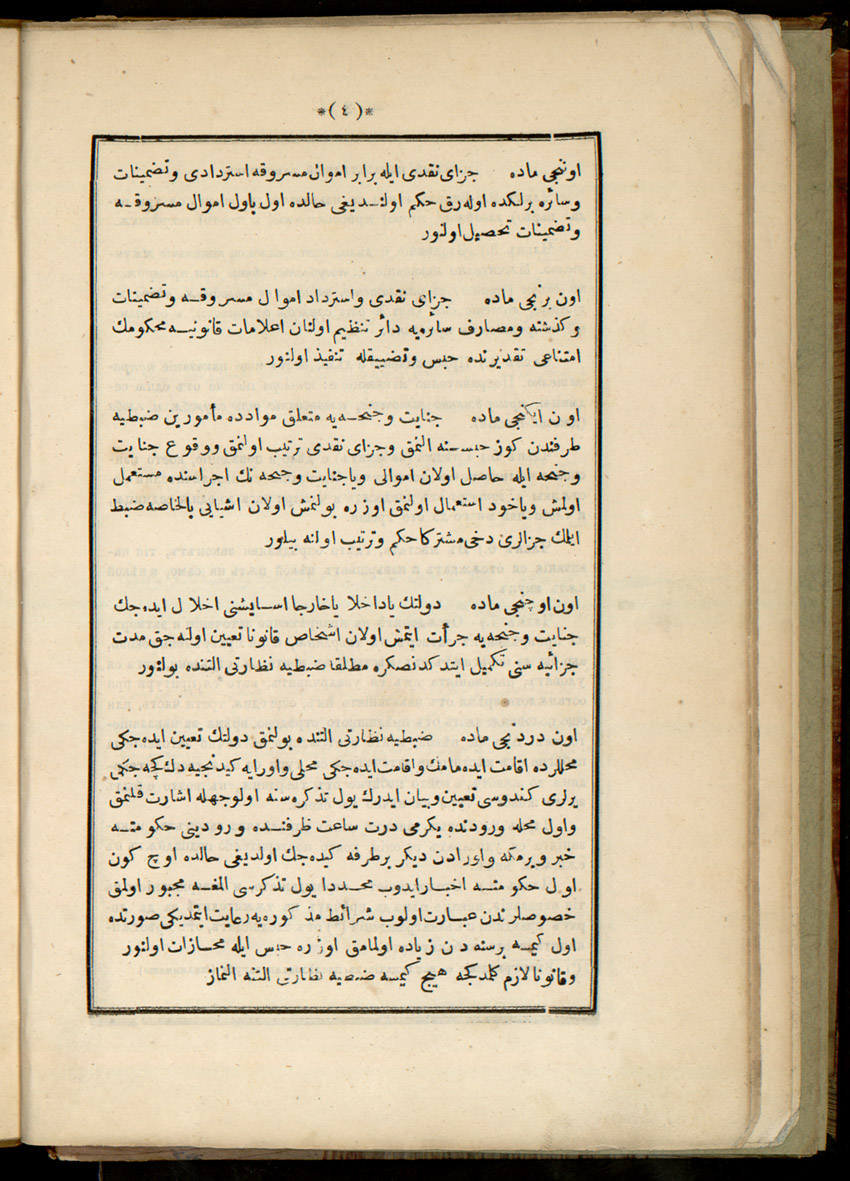 *(٤)*
اوننجی ماده جزای نقدی ایله برابر اموال مسروقه استردادی وتضمینات
وسائره برلکده اوله رق حکم اولندیغی حالده اول باول اموال مسروقه
وتضمینات تحصیل اولنور
اون برنجی ماده جزای نقدی واسترداد اموال مسروقه وتضمینات
وکذشته ومصارف سائره یه دائر تنظیم اولنان اعلامات قانونیه محکومك
امتناعی تقدیرنده حبس وتضییقله تنفیذ اولنور
اون ایکنجی ماده جنایت وجنحه یه متعلق موادده مأمورین ضبطیه
طرفندن کوز حبسنه النمق وجزای نقدی ترتیب اولنمق ووقوع جنایت
وجنحه ایله حاصل اولان اموالی ویاجنایت وجنحه نك اجراسنده مستعمل
اولمش ویاخود استعمال اولنمق اوزره بولنمش اولان اشیایی بالخاصه ضبط
ایلمك جزالری دخی مشترکا حکم وترتیب اولنه بیلور
اون اوچنجی ماده دولتك یاداخلا یاخارجا اسایشنی اخلال ایده جك
جنایت وجنحه یه جرأت ایتمش اولان اشخاص قانونا تعیین اولنه جق مدت
جزائیه سنی تکمیل ایتدکدنصکره مطلقا ضبطیه نظارتی التنده بولنور
اون دردنجی ماده ضبطیه نظارتی التنده بولنمق دولتك تعیین ایده جکی
محللرده اقامت ایده مامك واقامت ایده جکی محلی واورایه کیدنجیه دك کچه جکی
یرلری کندوسی تعیین وبیان ایدرك یول تذکره سنه اولوجهله اشارت قلنمق
واول محله ورودنده یکرمی درت ساعت ظرفنده ورودینی حکومته
خبر ویرمکه واورادن دیکر برطرفه کیده جك اولدیغی حالده اوچ کون
اول حکومته اخبار ایدوب مجددا یول تذکرسی المغه مجبور اولمق
خصوصلرندن عبارت اولوب شرائط مذکوره یه رعایت ایتمدیکی صورتده
اول کیمسه برسنه دن زیاده اولمامق اوزره حبس ایله مجازات اولنور
وقانونا لازم کلمدکجه هیچ کیمسه ضبطیه نظارتی التنه النماز